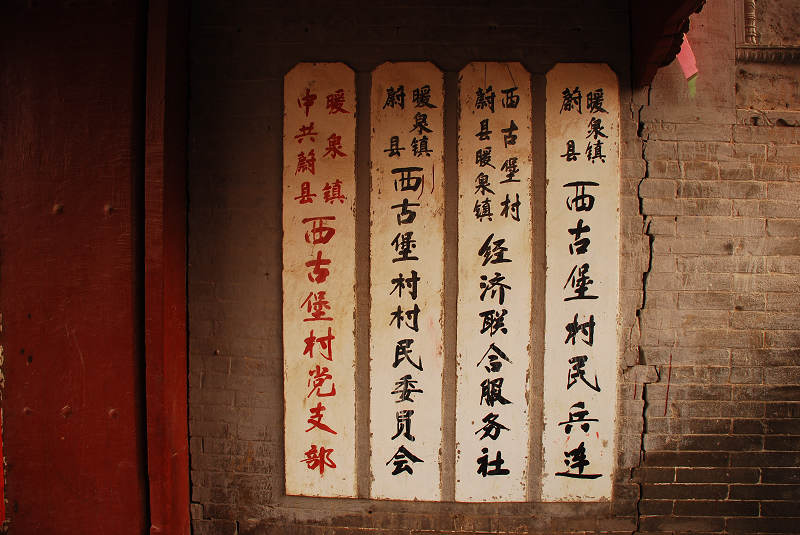 中共蔚县
暖泉镇
西古堡村党支部
蔚县
暖泉镇
西古堡村村民委员会
蔚县暖泉镇
西古堡村
经济联合服务社
蔚县
暖泉镇
西古堡村民兵连